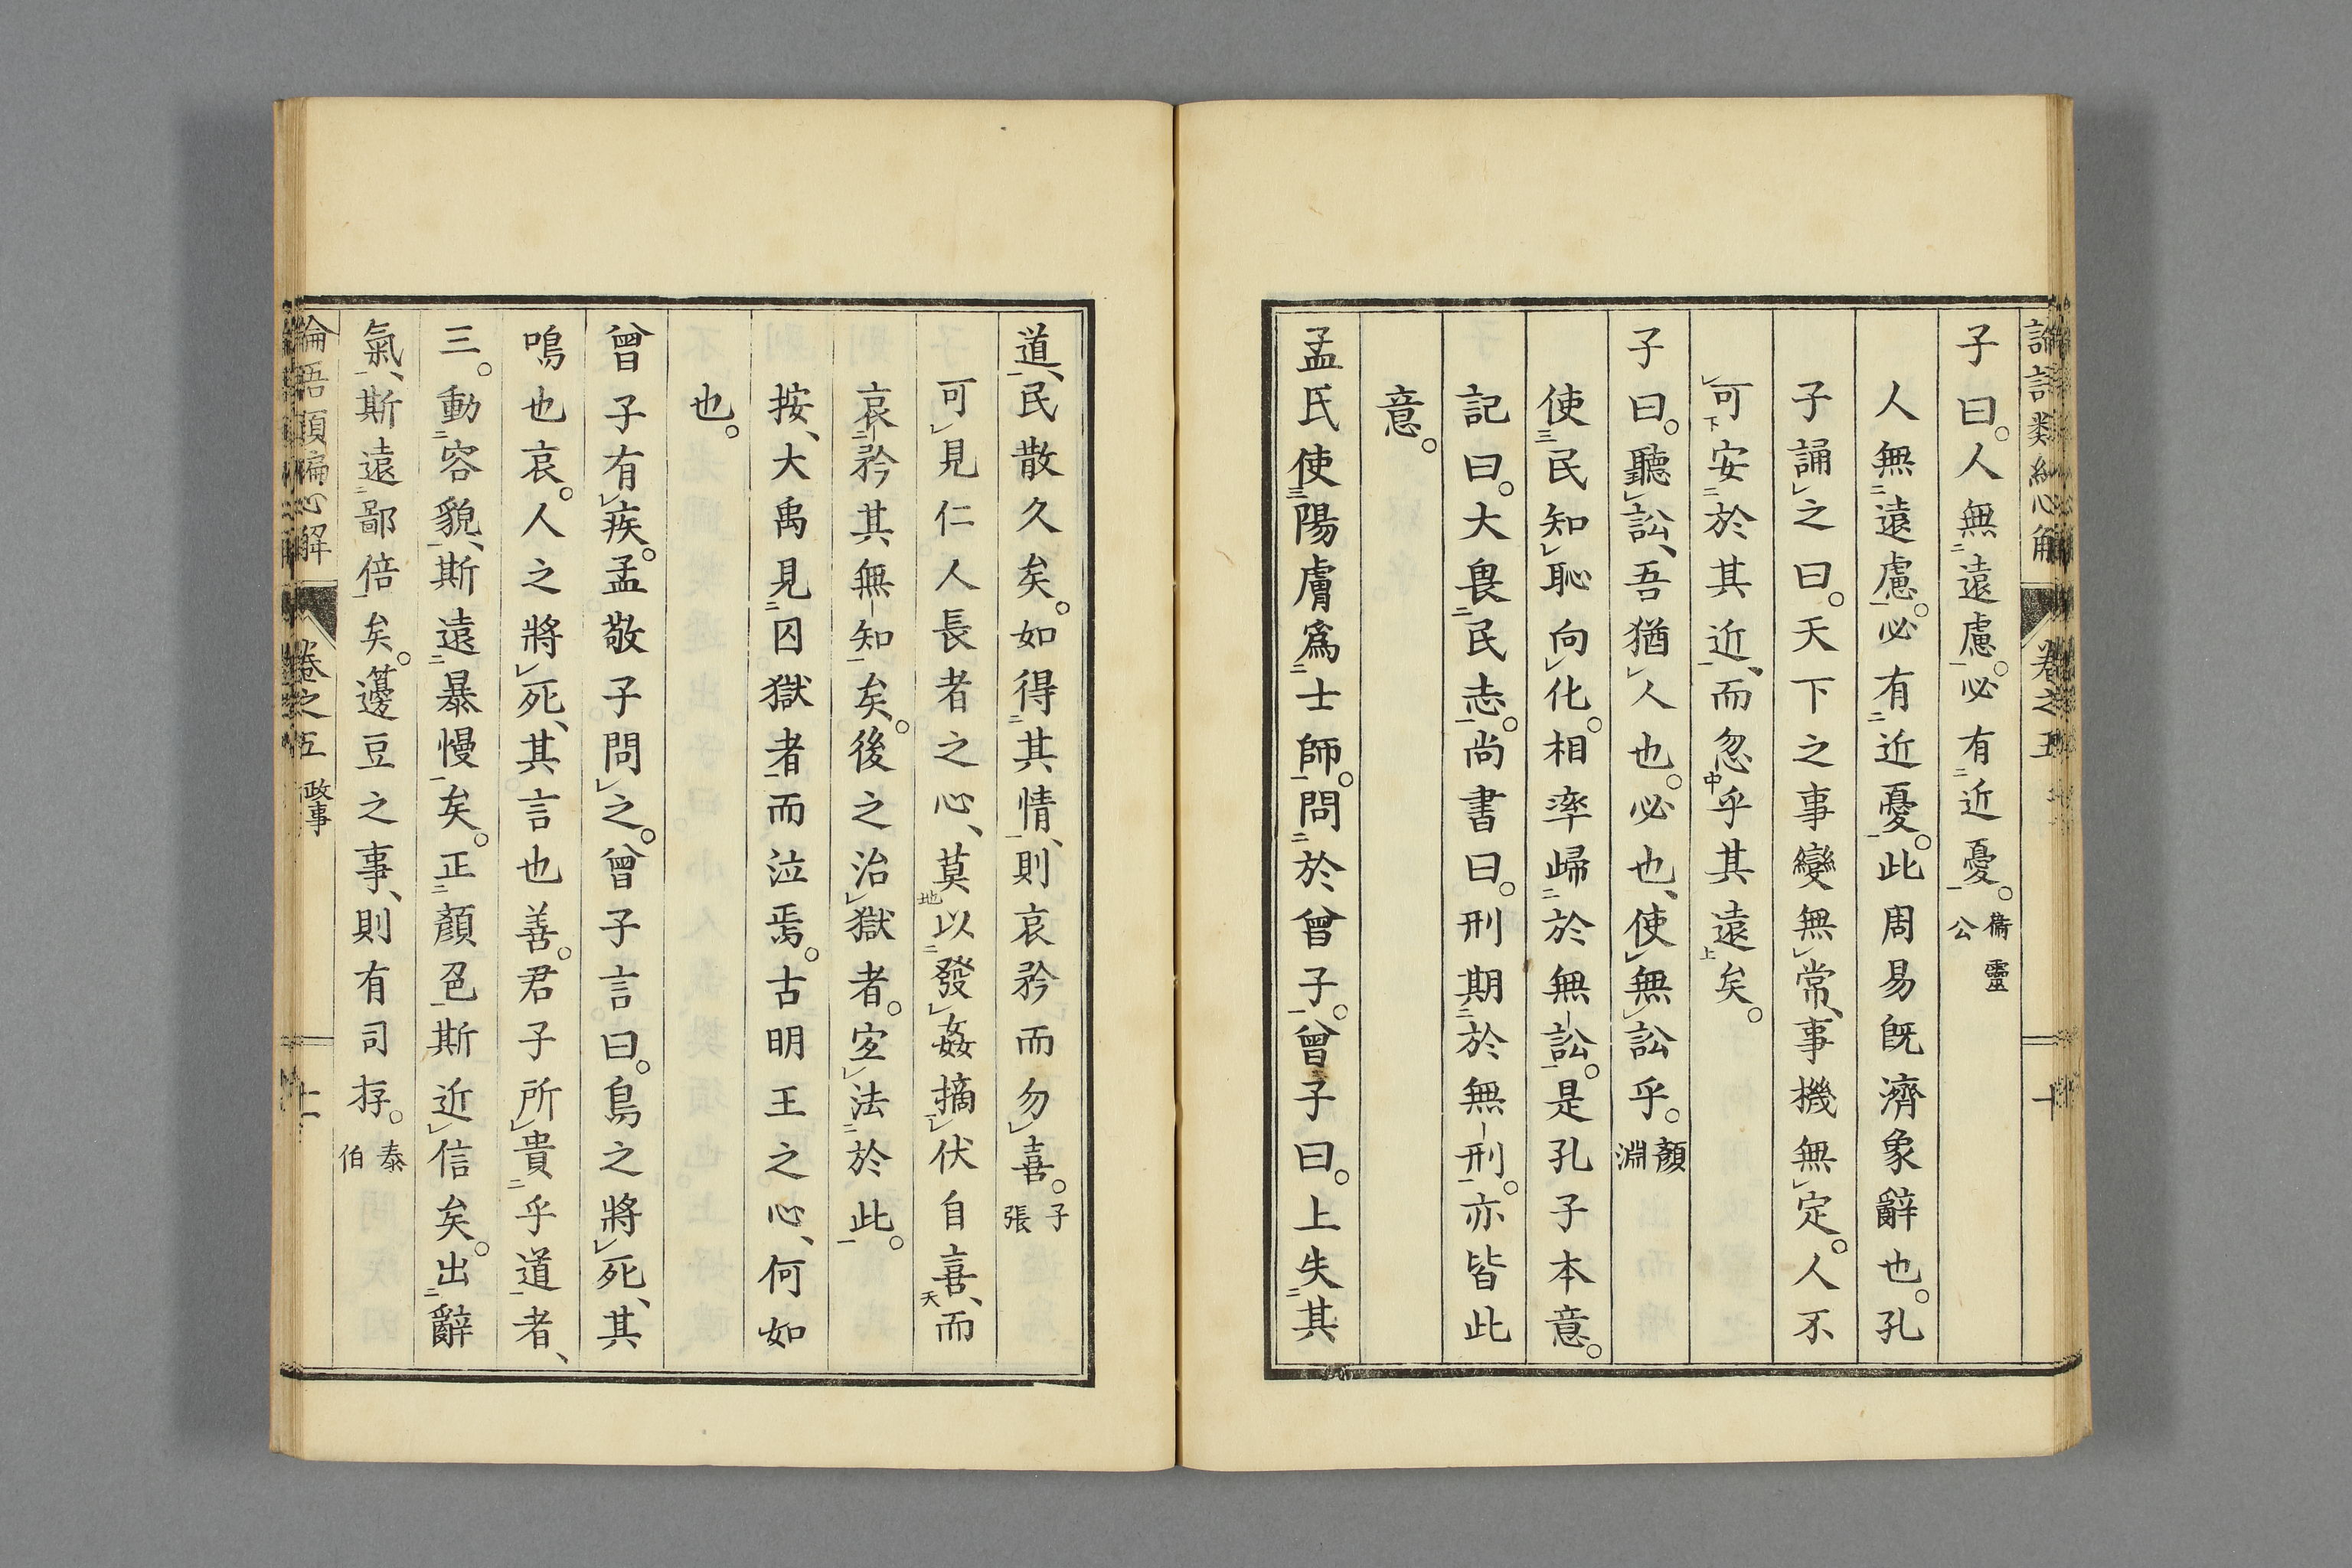 子曰。人無遠慮。必有近憂。衞靈公
人無遠慮。必有近憂。此周易既濟象辭也。孔
子誦之曰。天下之事變無常、事機無定。人不
可安於其近、而忽乎其遠矣。
子曰。聽訟、吾猶人也。必也、使無訟乎。顏淵
使民知恥向化。相率歸於無訟。是孔子本意。
記曰。大畏民志。尚書曰。刑期於無刑。亦皆此
意。
孟氏使陽膚爲士師。問於曾子。曾子曰。上失其
道、民散久矣。如得其情、則哀矜而勿喜。子張
可見仁人長者之心、莫以發姦摘伏自喜、而
哀矜其無知矣。後之治獄者。定法於此。
按、大禹見囚獄者而泣焉。古明王之心、何如
也。
曾子有疾。孟敬子問之。曾子言曰。鳥之將死、其
鳴也哀。人之將死、其言也善。君子所貴乎道者、
三。動容貌、斯遠暴慢矣。正顏色斯近信矣。出辭
氣、斯遠鄙倍矣。籩豆之事、則有司存。泰伯
論語類編心解 卷之五 政事